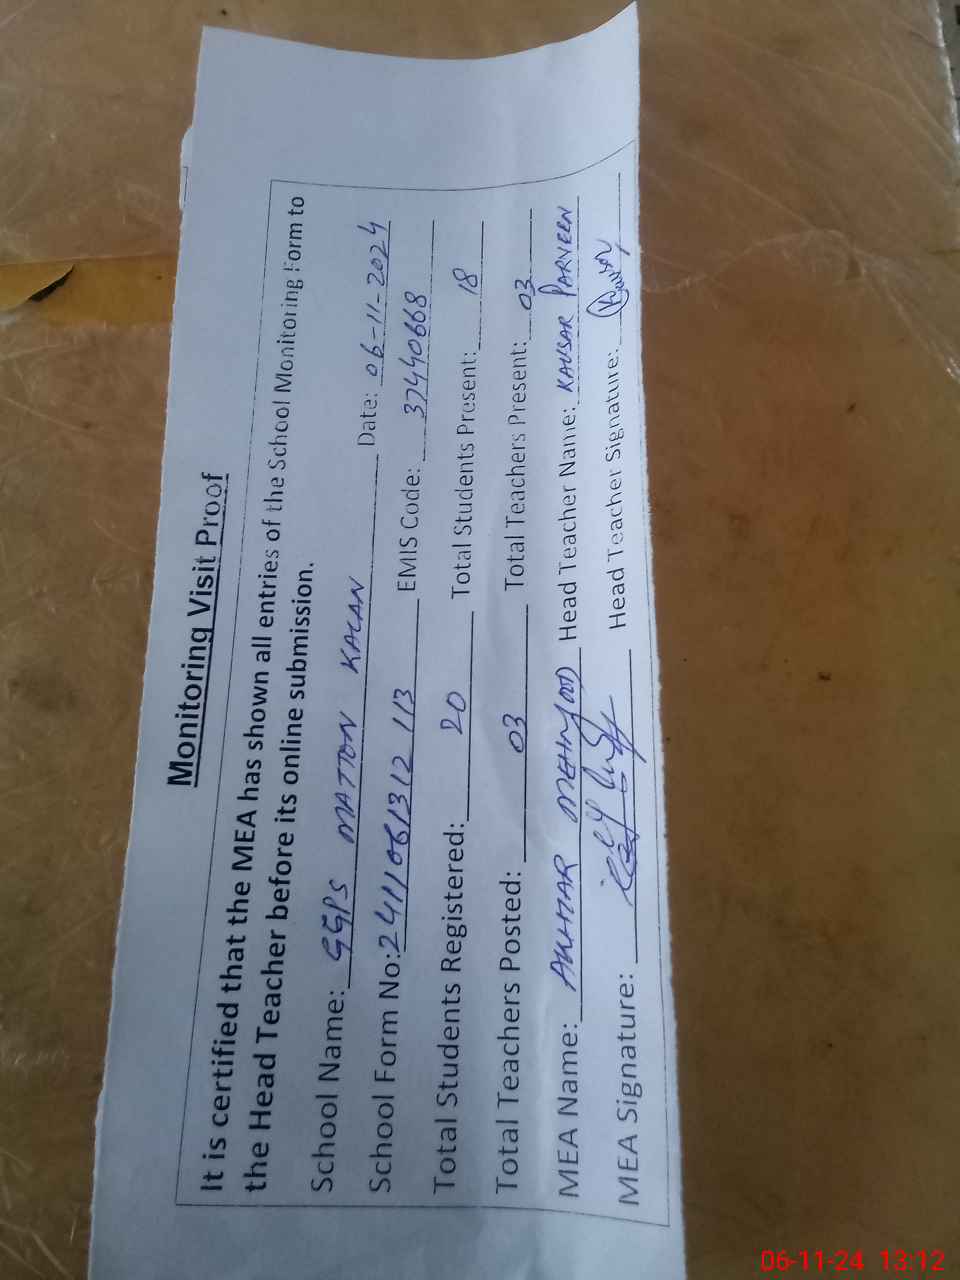 Monitoring Visit Proof
It is certified that the MEA has shown all entries of the School Monitoring Form to
the Head Teacher before its online submission.
School Name: GGPS MATTON KALAN Date: 06-11-2024
School Form No: 2411061312 113 EMIS Code: 37440668
Total Students Registered: 20 Total Students Present: 18
Total Teachers Posted: 03 Total Teachers Present: 03
MEA Name: AKHTAR MEHMOOD Head Teacher Name: KAUSAR PARVEEN
MEA Signature: Head Teacher Signature:
06-11-24 13:12